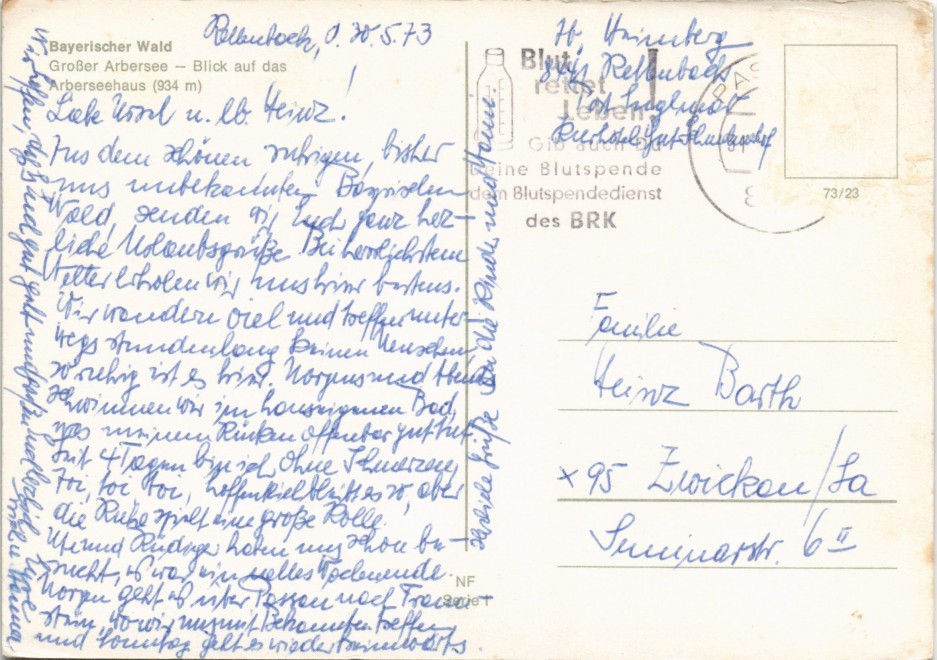 Bayerischer Wald
Großer Arbersee – Blick auf das
Arberseehaus (934 m)
Rettenbach, d. 30.5.73
Liebe Ursel u. lb. Heinz!
Aus dem schönen ruhigen, bisher
uns unbekannten Bayrischen
Wald, senden wir Euch ganz herz-
liche Urlaubsgrüße. Bei herrlichstem
Wetter erholen wir uns hier bestens.
Wir wandern viel und treffen unter-
wegs stundenlang keinen Menschen,
so ruhig ist es hier. Morgens und Abends
schwimmen wir im hauseigenen Bad,
was meinem Rücken offenbar gut tut.
Seit 4 Tagen bin ich ohne Schmerzen,
toi, toi, toi, hoffentlich bleibt es so, aber
die Ruhe spielt eine große Rolle.
Ute und Rüdiger haben uns schon be-
sucht, es war ein tolles Wochenende.
Morgen geht es über Passau nach Traun-
stein, wo wir uns mit Bekannten treffen
und Sonntag geht es wieder heimwärts.
Wir hoffen, daß es Euch gut geht und grüßen Euch herzlich
Herzliche Grüße an die Kinder und Hanne.
H. Heimberg
8441 Rettenbach
Post Englmar
Kurhotel Gut Schmelmerhof
Blut
rettet
Leben!
Gib auch Du
Deine Blutspende
dem Blutspendedienst
des BRK
73/23
Familie
Heinz Barth
x 95 Zwickau/Sa
Seminarstr. 6 II
NF
Serie I